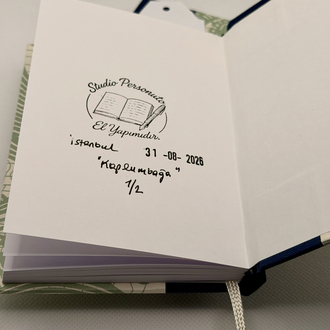 Studio Personute
El Yapımıdır.
istanbul 31 -08- 2026
"Kaplumbağa"
1/2